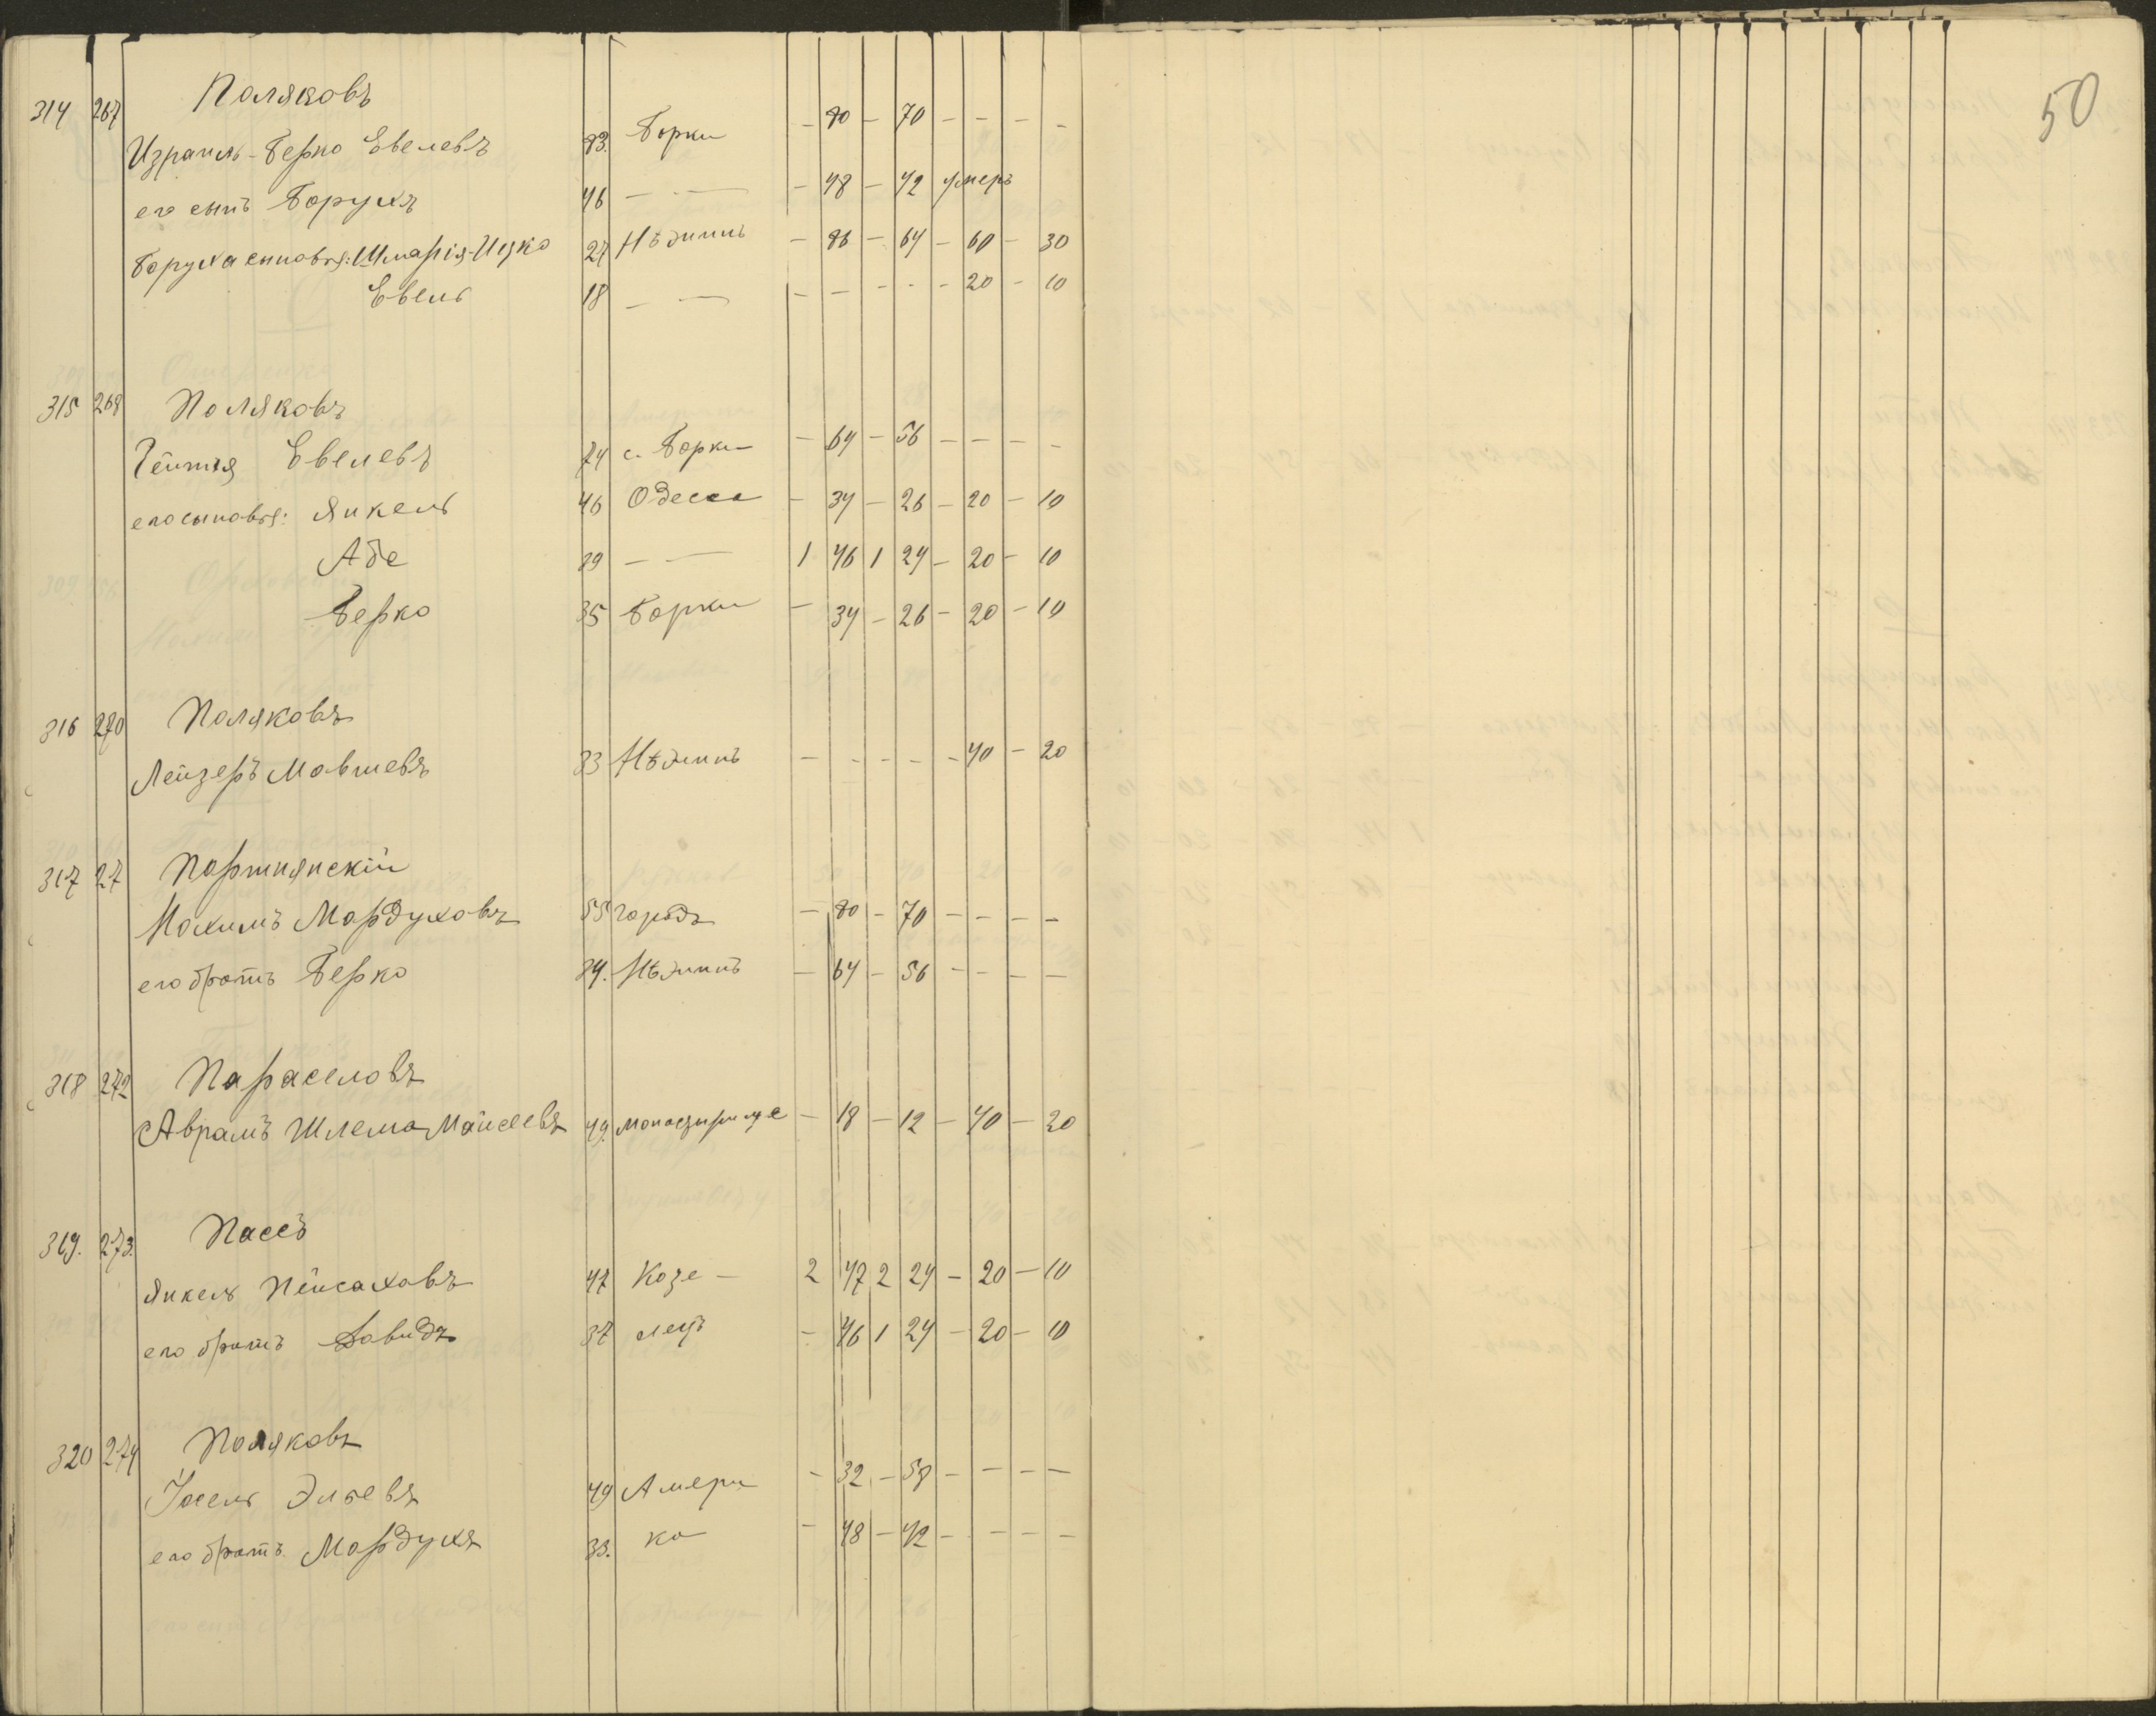 50
314 267 Поляковъ
Израиль-Берко Евелевъ 73. Борки – 80 – 70 – – – –
его сынъ Борухъ 46 – — – 48 – 42 умеръ
Боруха сыновья: Шмарія-Ицко 27 Нѣжинъ – 76 – 64 – 60 – 30
Евель 18 – — – – – – – 20 – 10
315 268 Поляковъ
Евелевъ 74 с. Борки – 64 – 56 – – – –
его сыновья: Янкель 46 Одесса – 34 – 26 – 20 – 10
Абе 39 – — 1 46 1 24 – 20 – 10
Берко 35 Борки – 34 – 26 – 20 – 10
316 270 Поляковъ
Лейзеръ Мовшевъ 33 Нѣжинъ – – – – – 40 – 20
317 27 Портнянскій
Нохимъ Мордуховъ 55 городъ – 80 – 70 – – – –
его братъ Берко 34. Нѣжинъ – 64 – 56 – – – –
318 272 Параселовъ
Аврамъ Шлема Моисеевъ 49. Монастырище – 18 – 12 – 40 – 20
319. 273. Пассъ
Янкель Пейсаховъ 47 Козе – 2 47 2 24 – 20 – 10
его братъ Давидъ 37 лецъ – 46 1 24 – 20 – 10
320 274 Поляковъ
Іосель Эльевъ 49 Амери – 32 – 58 – – – –
его братъ Мордухъ 33. ка – 48 – 42 – – – –